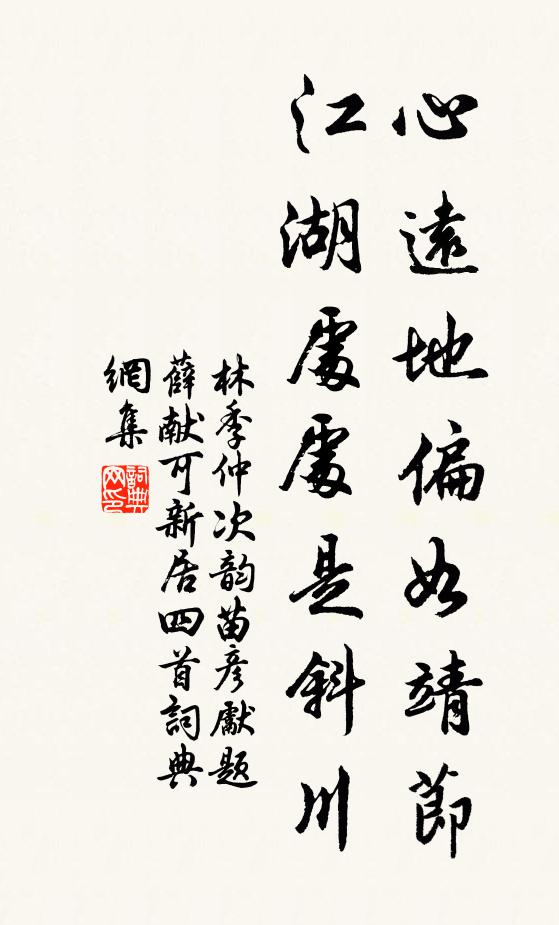 心遠地偏如靖節
江湖處處是斜川
林季仲次韵苗彦獻題
薛献可新居四首詞典
網集
詞典
网印